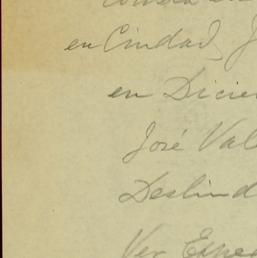 en Ciudad J
en Dicie
José Val
Deslind
Ver Expe